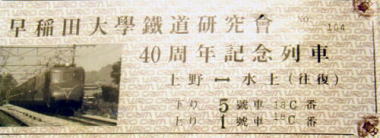 早稲田大學鐵道研究會 NO. 104
40周年記念列車
上野 ― 水上 (往復)
下り 5 號車 18C 番
上り 1 號車 C 番